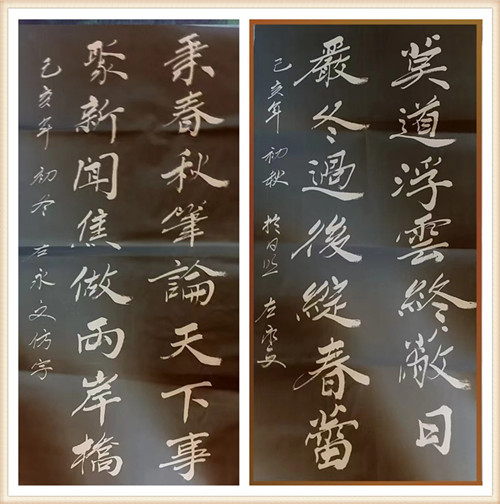 莫道浮雲終蔽日
嚴冬過後綻春蕾
己亥年 初秋 於日照 左永文
秉春秋筆論天下事
聚新聞焦做兩岸橋
己亥年 初冬 左永文仿字